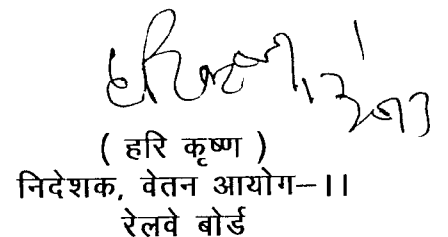 ( हरि कृष्ण )
निदेशक, वेतन आयोग–।।
रेलवे बोर्ड